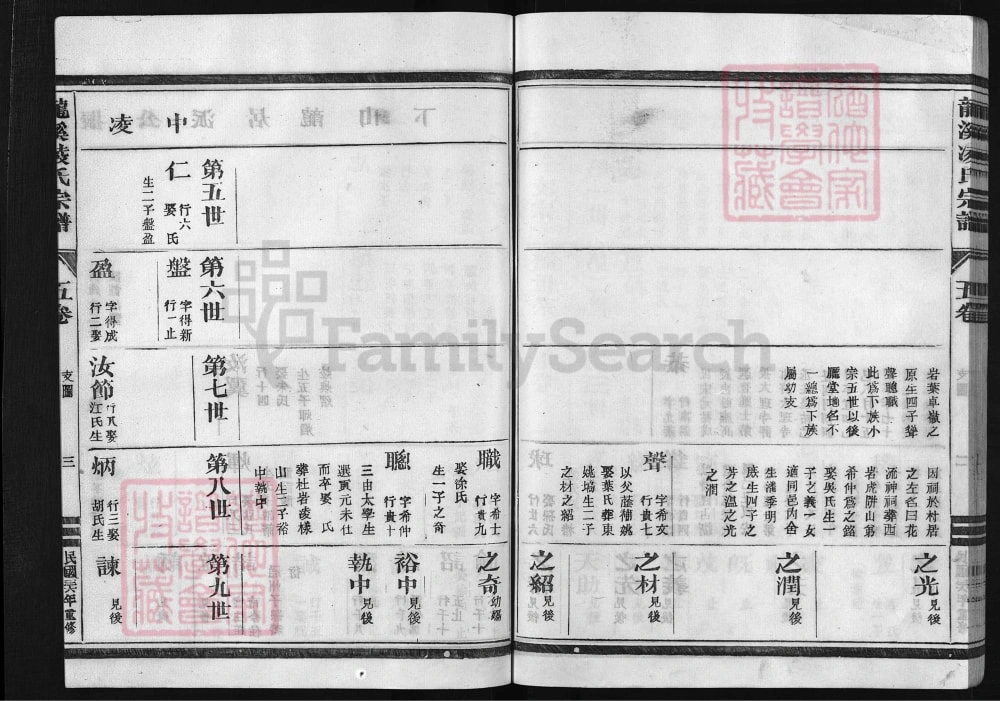 龍溪凌氏宗譜
五卷
支圖
二
岩葉卓嶽之
原生四子聳
聲聰職
此爲下族小
宗五世以後
廳堂地名不
一總爲下族
屬功支
因祠於村居
之左名曰花
流神祠葬西
岩虎阱山第
希仲爲之銘
娶吳氏生一
子之義一女
適同邑內舍
生潘季明
庶生四子之
芳之溫之光
之潤
之光 見後
之潤 見後
聲 字希文
行貴七
以父蔭補姚
娶葉氏葬東
姚塢生二子
之材之紹
之材 見後
之紹 見後
職 字希士
行貴九
娶涂氏
生一子之奇
之奇 幼殤
聰 字希仲
行貴十
三由太學生
選寅元未仕
而卒娶 氏
葬杜岩凌樣
山生二子裕
中執中
裕中 見後
執中 見後
中凌
第五世
仁 行六
娶 氏
生二子盤盈
第六世
盤 字得新
行一止
盈 字得成
行二娶
第七世
汝節 行八娶
江氏生
第八世
炳 行三娶
胡氏生
第九世
諫 見後
龍溪凌氏宗譜
五卷
支圖
三
民國三六年重修
FamilySearch